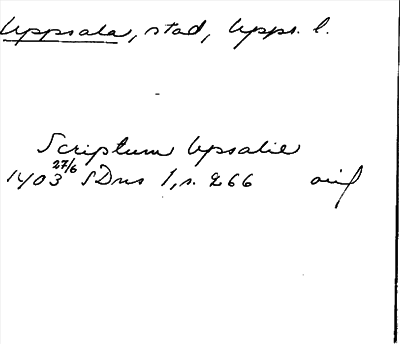 Uppsala, stad, Upps. l.
Scriptum Upsalie
1403 27/6 SDns 1, s. 266 avs